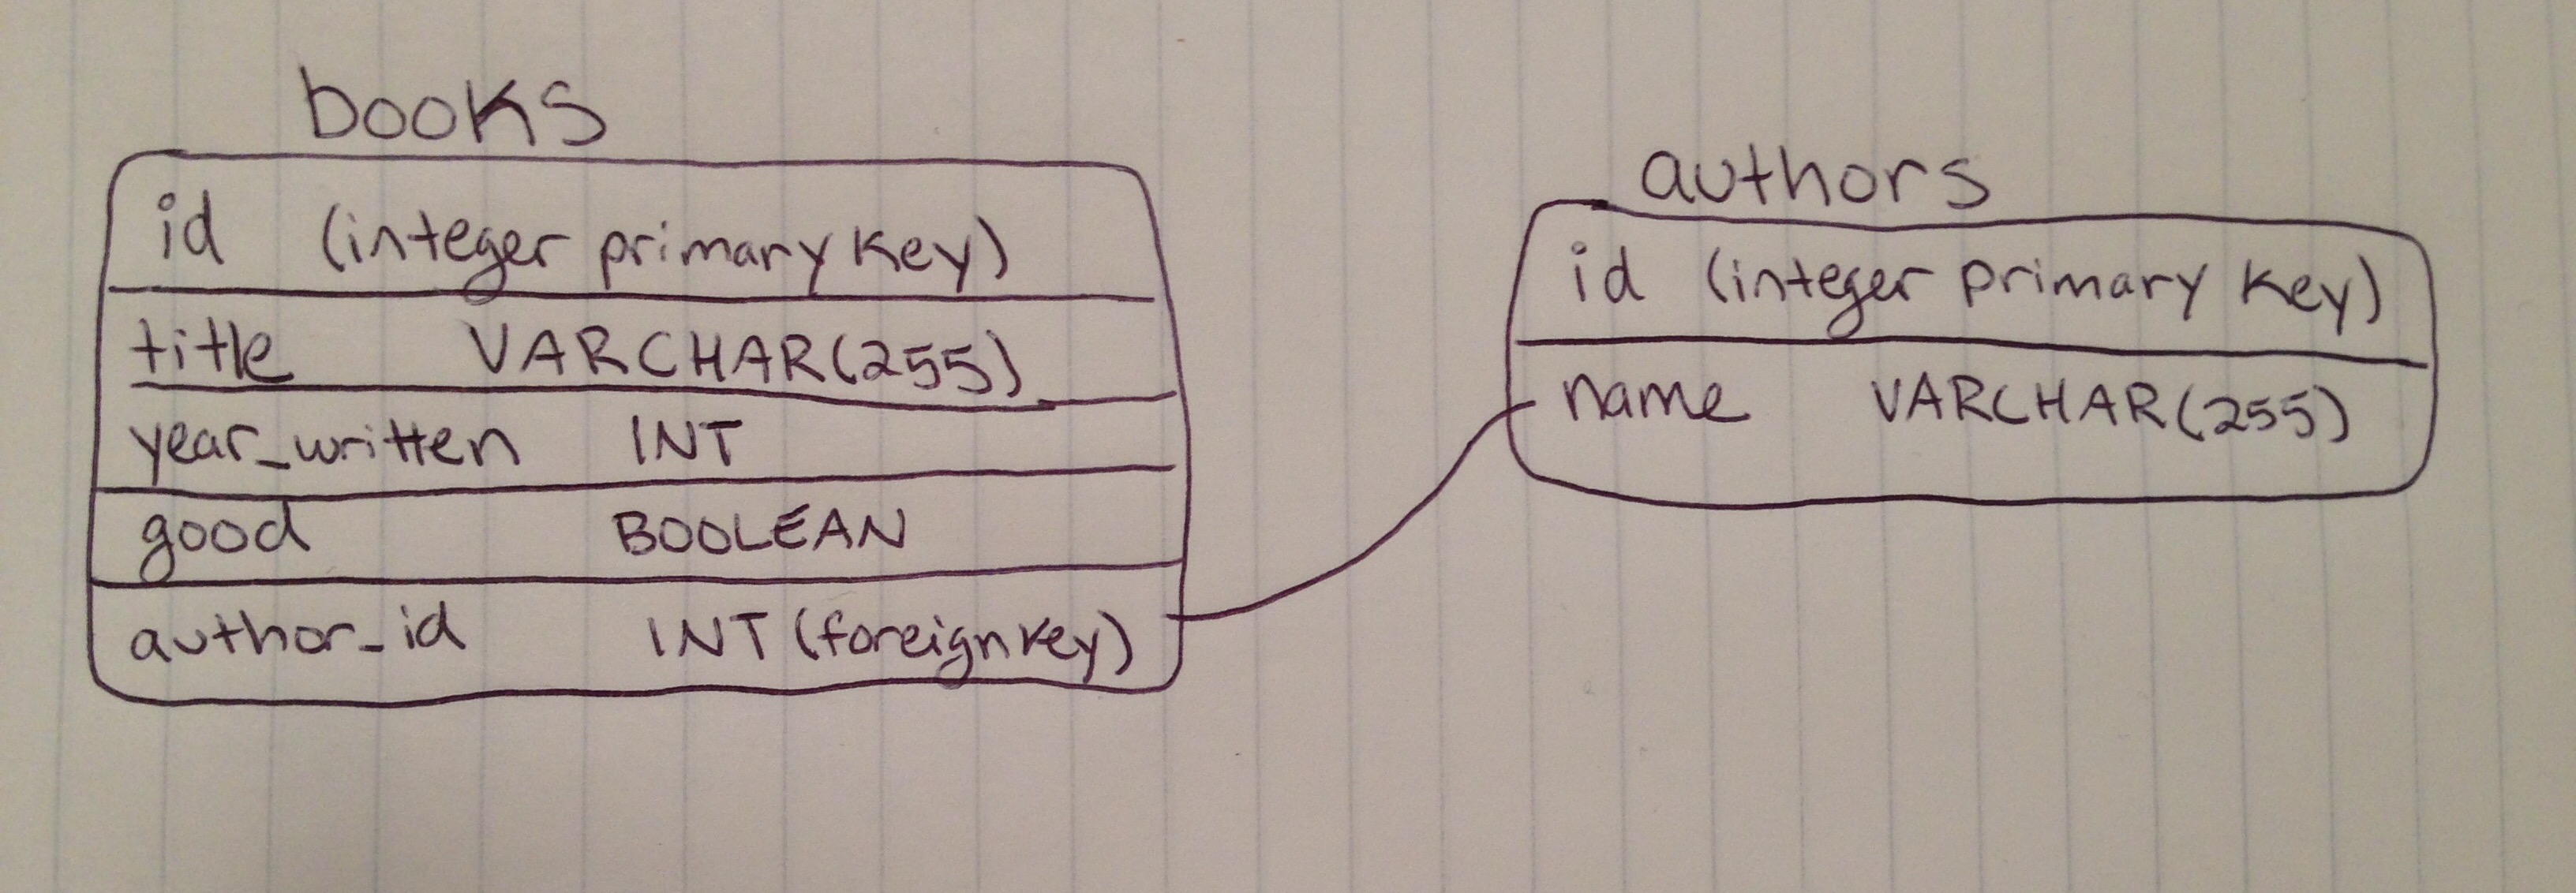 books
id (integer primary key)
title VARCHAR(255)
year_written INT
good BOOLEAN
author_id INT (foreign key)
authors
id (integer primary key)
name VARCHAR(255)